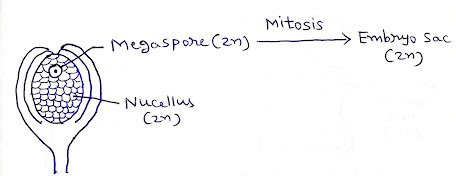 Mitosis
Megaspore (2n) → Embryo Sac
(2n)
Nucellus
(2n)